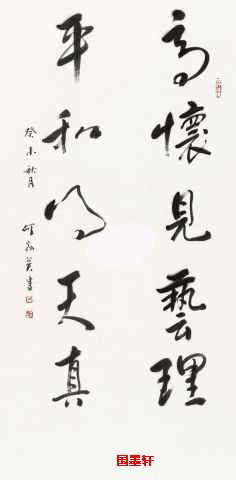 高懷見藝理
平和得天真
癸未秋月
英書
国墨轩